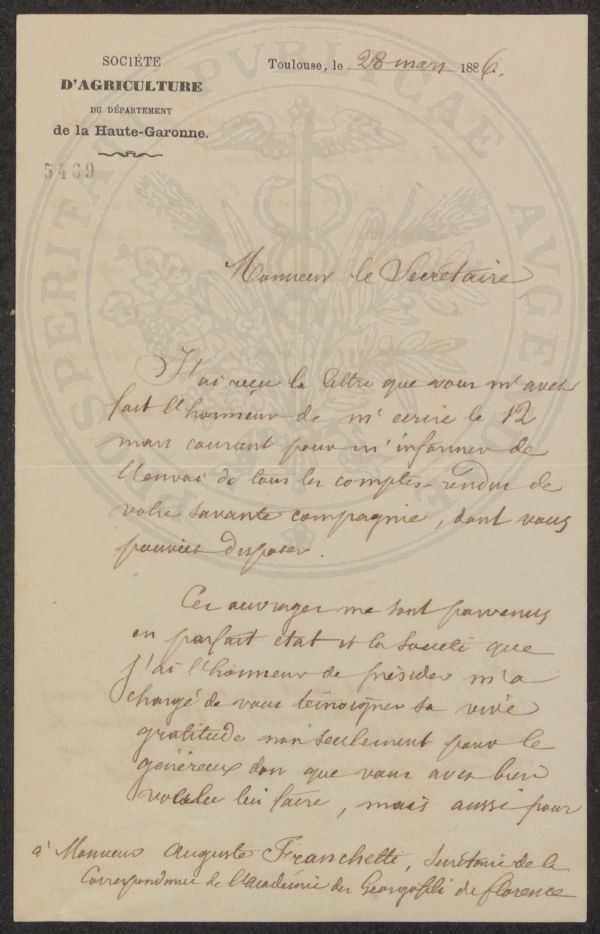 SOCIÉTÉ
D'AGRICULTURE
DU DÉPARTEMENT
de la Haute-Garonne.
5469
Toulouse, le 28 mars 1886.
PROSPERITATI PVBLICAE AVGENDAE
Monsieur le Secrétaire,
J'ai reçu la lettre que vous m'avez
fait l'honneur de m'écrire le 12
mars courant pour m'informer de
l'envoi de tous les comptes-rendus de
votre savante compagnie, dont vous
pouviez disposer.
Ces ouvrages me sont parvenus
en parfait état et la Société que
j'ai l'honneur de présider m'a
chargé de vous témoigner sa vive
gratitude non seulement pour le
généreux don que vous avez bien
voulu lui faire, mais aussi pour
à Monsieur Auguste Franchetti, Secrétaire de la
Correspondance de l'Académie des Georgofili de Florence